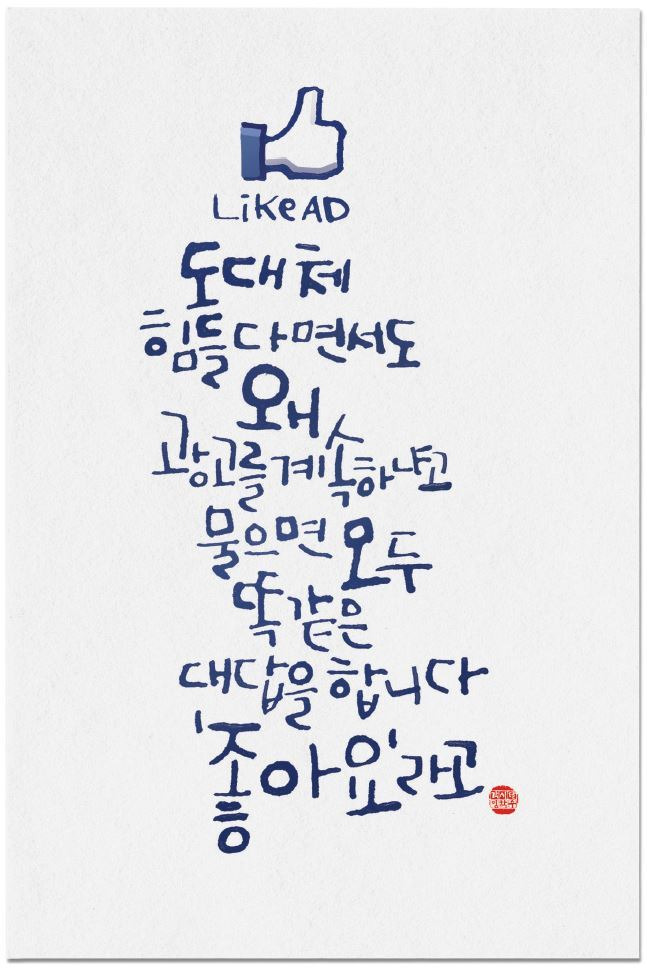 LiKe AD
도대체
힘들다면서도
왜
광고를 계속하냐고
물으면 모두
똑같은
대답을 합니다
'좋아요'라고